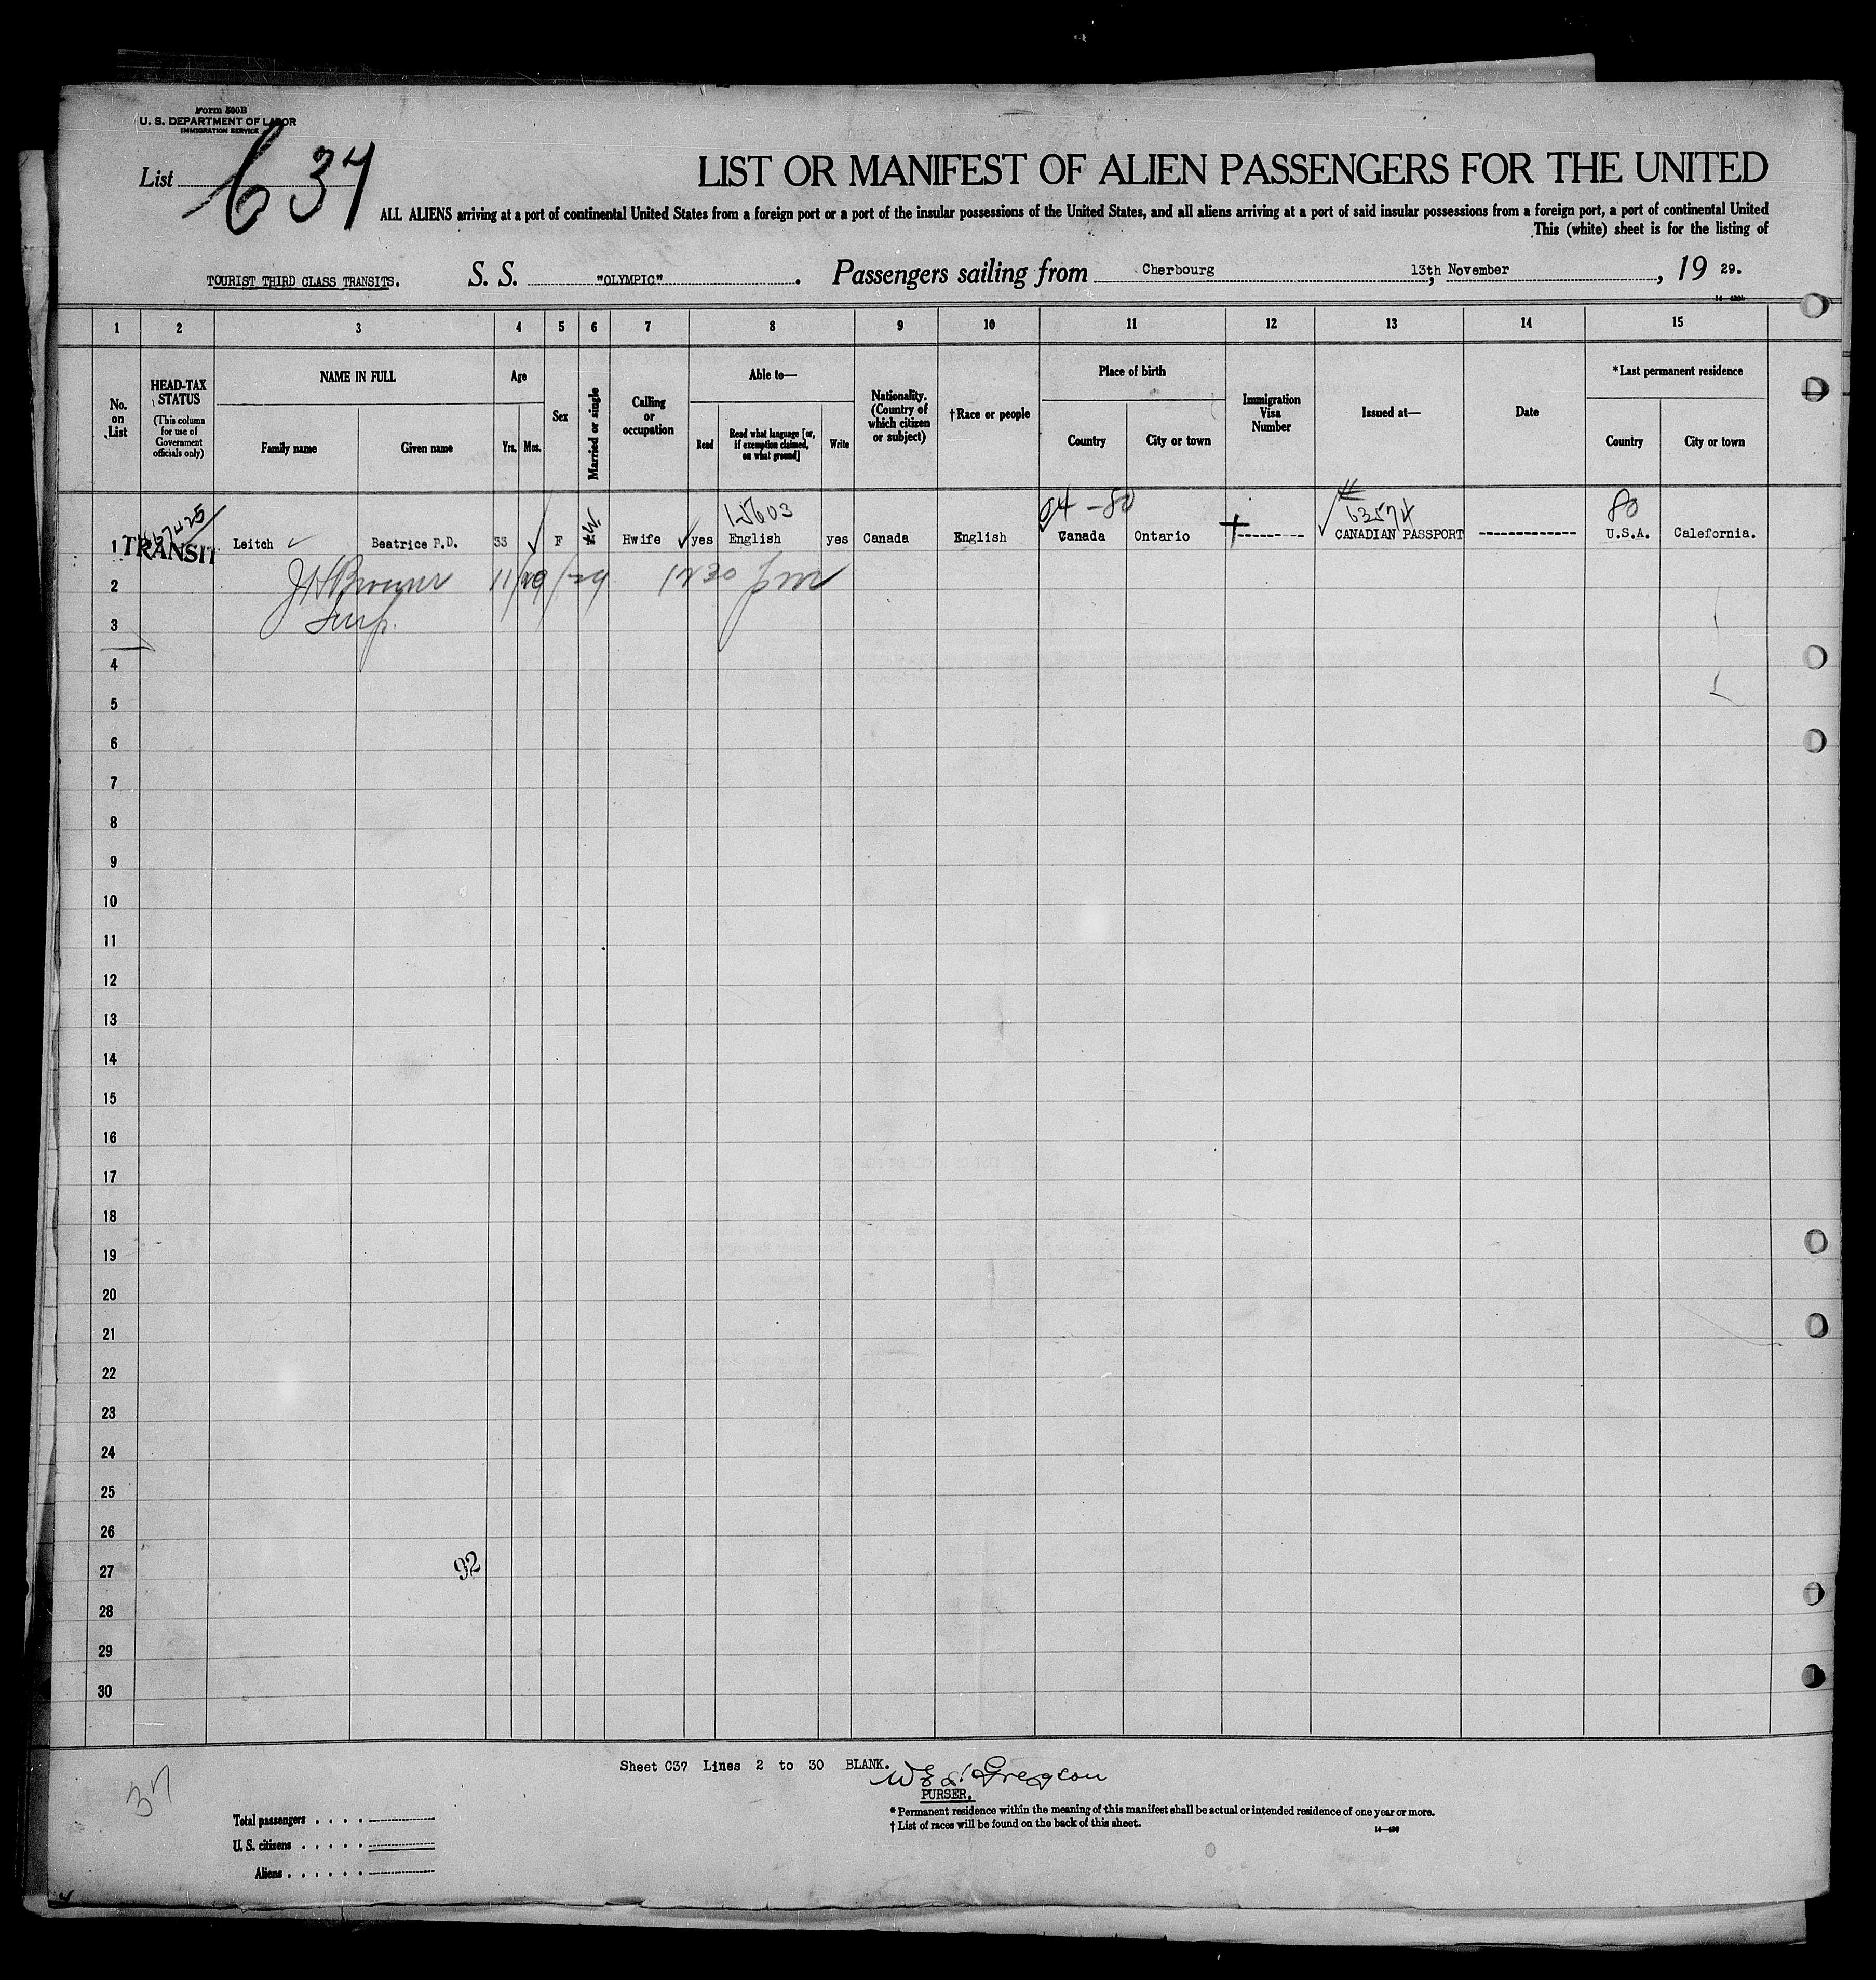 Form 500B
U. S. DEPARTMENT OF LABOR
IMMIGRATION SERVICE
List C 37
LIST OR MANIFEST OF ALIEN PASSENGERS FOR THE UNITED
ALL ALIENS arriving at a port of continental United States from a foreign port or a port of the insular possessions of the United States, and all aliens arriving at a port of said insular possessions from a foreign port, a port of continental United
This (white) sheet is for the listing of
TOURIST THIRD CLASS TRANSITS. S. S. "OLYMPIC" . Passengers sailing from Cherbourg 13th November , 19 29.
1 2 3 4 5 6 7 8 9 10 11 12 13 14 15
No. on List
HEAD-TAX STATUS
(This column for use of Government officials only)
NAME IN FULL
Family name Given name
Age
Yrs. Mos.
Sex
Married or single
Calling or occupation
Able to—
Read
Read what language [or, if exemption claimed, on what ground]
Write
Nationality. (Country of which citizen or subject)
†Race or people
Place of birth
Country City or town
Immigration Visa Number
Issued at—
Date
*Last permanent residence
Country City or town
04 -80 80
1 TRANSIT Leitch Beatrice P.D. 33 F Hwife yes English yes Canada English Canada Ontario ---------- CANADIAN PASSPORT ------------- U.S.A. Calefornia.
2 11/20/29 1230 pm
3
4
5
6
7
8
9
10
11
12
13
14
15
16
17
18
19
20
21
22
23
24
25
26
27 92
28
29
30
Sheet C37 Lines 2 to 30 BLANK.
PURSER.
37
Total passengers . . . .
U. S. citizens . . . . .
Aliens . . . . . .
* Permanent residence within the meaning of this manifest shall be actual or intended residence of one year or more.
† List of races will be found on the back of this sheet.